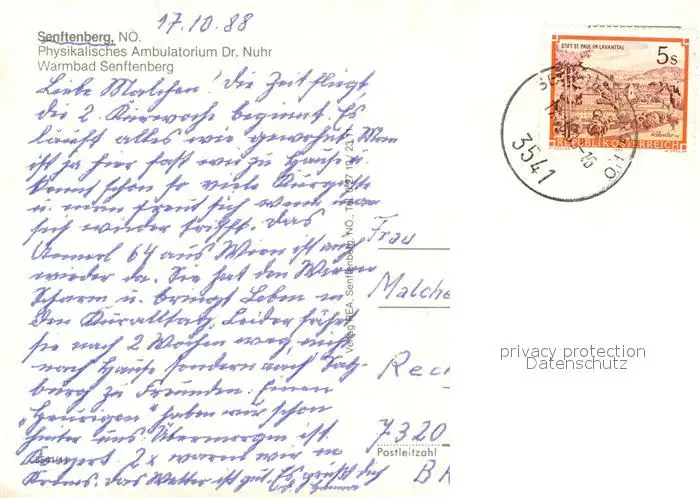 17.10.88
Senftenberg, NÖ.
Physikalisches Ambulatorium Dr. Nuhr
Warmbad Senftenberg
Liebe Malchen! die Zeit fliegt
die 2. Kurwoche beginnt. Es
läuft alles wie gewohnt. Man
ist ja hier fast wie zu Hause
kennt schon so viele Kurgäste
u. man freut sich wenn man
sich wieder trifft. Das
64 aus Wien ist auch
wieder da. Sie hat den Wiener
Scharm u. bringt Leben in
den Kuralltag. Leider fährt
sie nach 2 Wochen weg, nicht
nach Hause sondern nach Salz-
burg zu Freunden. Einen
"Heurigen" haben wir schon
hinter uns. Übermorgen ist
Konzert. 2x waren wir in
Krems. Das Wetter ist gut. Es grüßt dich
Verlag REA, Senftenberg, NÖ., Tel. 0 27 19 / 23 11
Frau
Malche
Rec
7320
Postleitzahl
B
STIFT ST. PAUL IM LAVANTTAL
5s
REPUBLIK ÖSTERREICH
3541
N.Ö.
privacy protection
Datenschutz